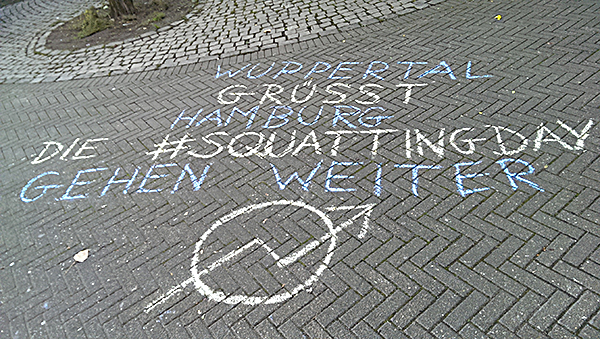 WUPPERTAL
GRÜSST
HAMBURG
DIE #SQUATTINGDAY
GEHEN WEITER